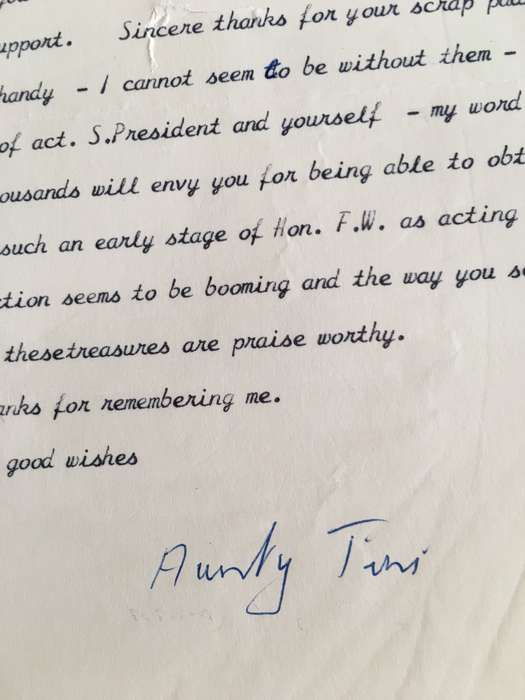 upport. Sincere thanks for your scrap
handy - I cannot seem to be without them -
of act. S.President and yourself - my word
ousands will envy you for being able to obt
such an early stage of Hon. F.W. as acting
tion seems to be booming and the way you s
thesetreasures are praise worthy.
anks for remembering me.
good wishes
Aunty Tini